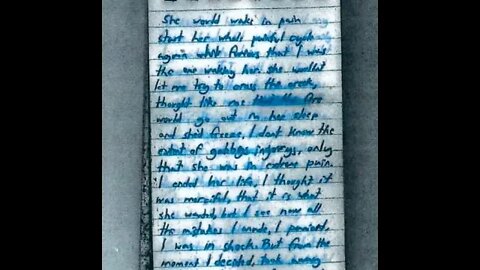 She would wake in pain
start her whole painful cycle
again while furious that I was
the one waking her. she wouldnt
let me try to cross the creek,
thought like me the fire
would go out in her sleep
and she'd freeze. I dont know the
extent of gabbys injurys, only
that she was in extreme pain.
I ended her life, I thought it
was merciful, that it is what
she wanted, but I see now all
the mistakes I made, I panicked,
I was in shock. But from the
moment I decided, took away